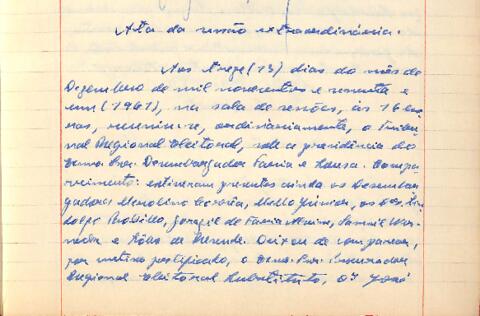 Ata da sessão extraordinária.
Aos treze (13) dias do mês de
Dezembro de mil novecentos e sessenta e
um (1961), na sala de sessões, às 16 ho-
ras, reuniu-se, ordinàriamente, o Tribu-
nal Regional Eleitoral, sob a presidência do
Exmo. Snr. Desembargador Faria e Sousa. Compa-
recimento: estiveram presentes ainda os Desembar-
gadores Merolino Corrêa, Mello Júnior, os
de Faria, Samuel
e de Resende. Deixou de comparecer,
por motivo justificado, o Exmo. Snr. Procurador
Regional Eleitoral Substituto, Dr. José